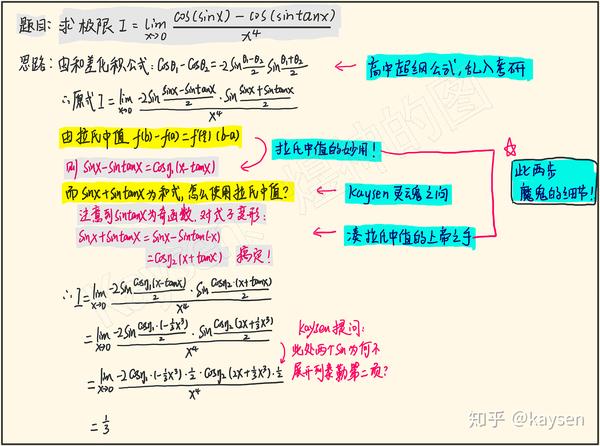 题目: 求极限 I = lim x→0 (cos(sinx) - cos(sintanx)) / x⁴
思路: 由和差化积公式: cosθ₁ - cosθ₂ = -2sin (θ₁-θ₂)/2 sin (θ₁+θ₂)/2
高中超纲公式, 乱入考研
∴原式 I = lim x→0 (-2sin (sinx - sintanx)/2 · sin (sinx + sintanx)/2) / x⁴
由拉氏中值 f(b) - f(a) = f'(ξ)(b-a)
拉氏中值的妙用!
则 sinx - sintanx = cosη₁(x - tanx)
此两步
魔鬼的细节!
而 sinx + sintanx 为和式, 怎么使用拉氏中值?
Kaysen 灵魂之问
注意到 sintanx 为奇函数. 对式子变形:
sinx + sintanx = sinx - sintan(-x)
凑拉氏中值的上帝之手
= cosη₂(x + tanx) 搞定!
∴ I = lim x→0 (-2sin (cosη₁(x-tanx))/2 · sin (cosη₂·(x+tanx))/2) / x⁴
= lim x→0 (-2sin (cosη₁·(-⅓x³))/2 · sin (cosη₂(2x+⅓x³))/2) / x⁴
Kaysen 提问:
此处两个 sin 为何不
展开到泰勒第二项?
= lim x→0 (-2cosη₁(-⅓x³)·½·cosη₂(2x+⅓x³)·½) / x⁴
= 1/3
知乎 @kaysen